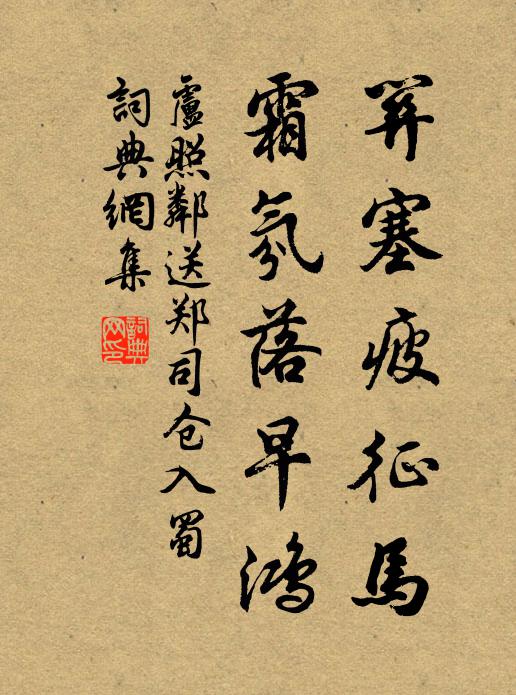 關塞疲征馬
霜氛落早鴻
盧照鄰送郑司仓入蜀
詞典網集
詞典
网印